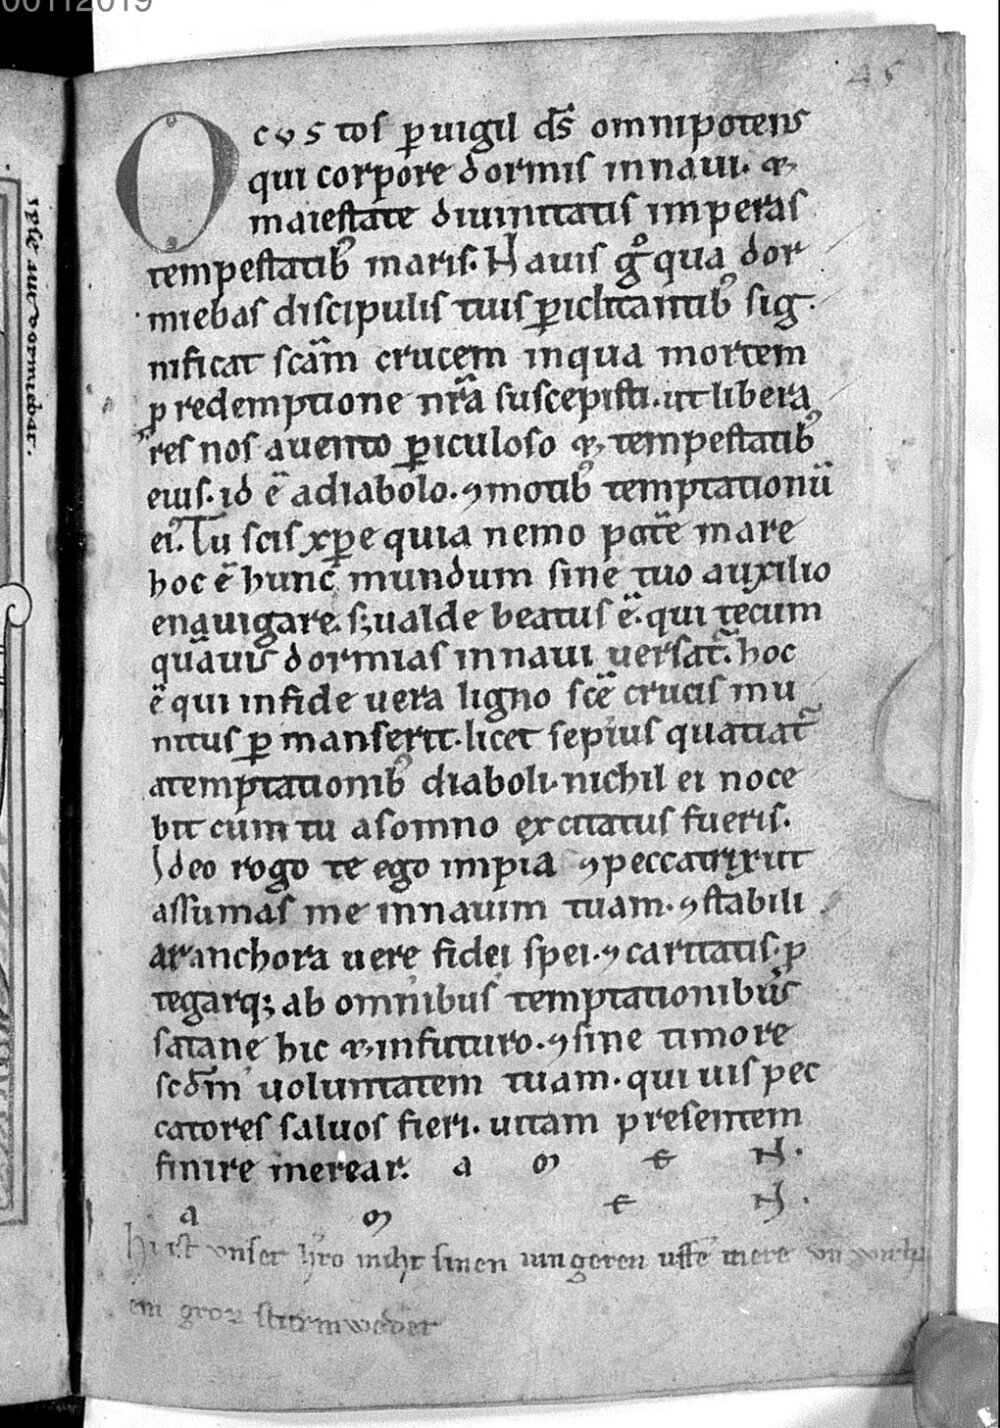 00112019
45
ipse aut dormiebat.
Ocvstos ꝑuigil ds̄ omnipotens
qui corpore dormis innaui. &
maiestate diuinitatis imperas
tempestatibꝰ maris. Nauis gͦ qua dor
miebas discipulis tuis ꝑiclitantibꝰ sig
nificat scām crucem inqua mortem
ꝓ redemptione nr̄a suscepisti. ut libera
res nos auento ꝑiculoso & tempestatibꝰ
eius. id ē adiabolo. ⁊ motibꝰ temptationū
eiꝰ. Tu scis xp̄e quia nemo potē mare
hoc ē hunc mundum sine tuo auxilio
enauigare. sꝫ ualde beatus ē. qui tecum
quāuis dormias innaui uersat᷑. hoc
ē qui infide uera ligno scē crucis mu
nitus ꝑmanserit. licet sepius quatiat᷑
atemptationibꝰ diaboli. nichil ei noce
bit cum tu asomno excitatus fueris.
Ideo rogo te ego impia ⁊ peccatrix ut
assumas me innauim tuam. ⁊ stabili
ar anchora uere fidei spei. ⁊ caritatis. ꝓ
tegarqꝫ ab omnibus temptationibus
satane hic & infuturo. ⁊ sine timore
scd̄m uoluntatem tuam. qui uis pec
catores saluos fieri. uitam presentem
finire merear. a m e N.
a m e N.
hi ist vnser h̄ro mihr sinen iungeren vffē mere vn̄
ein groz sturmweder